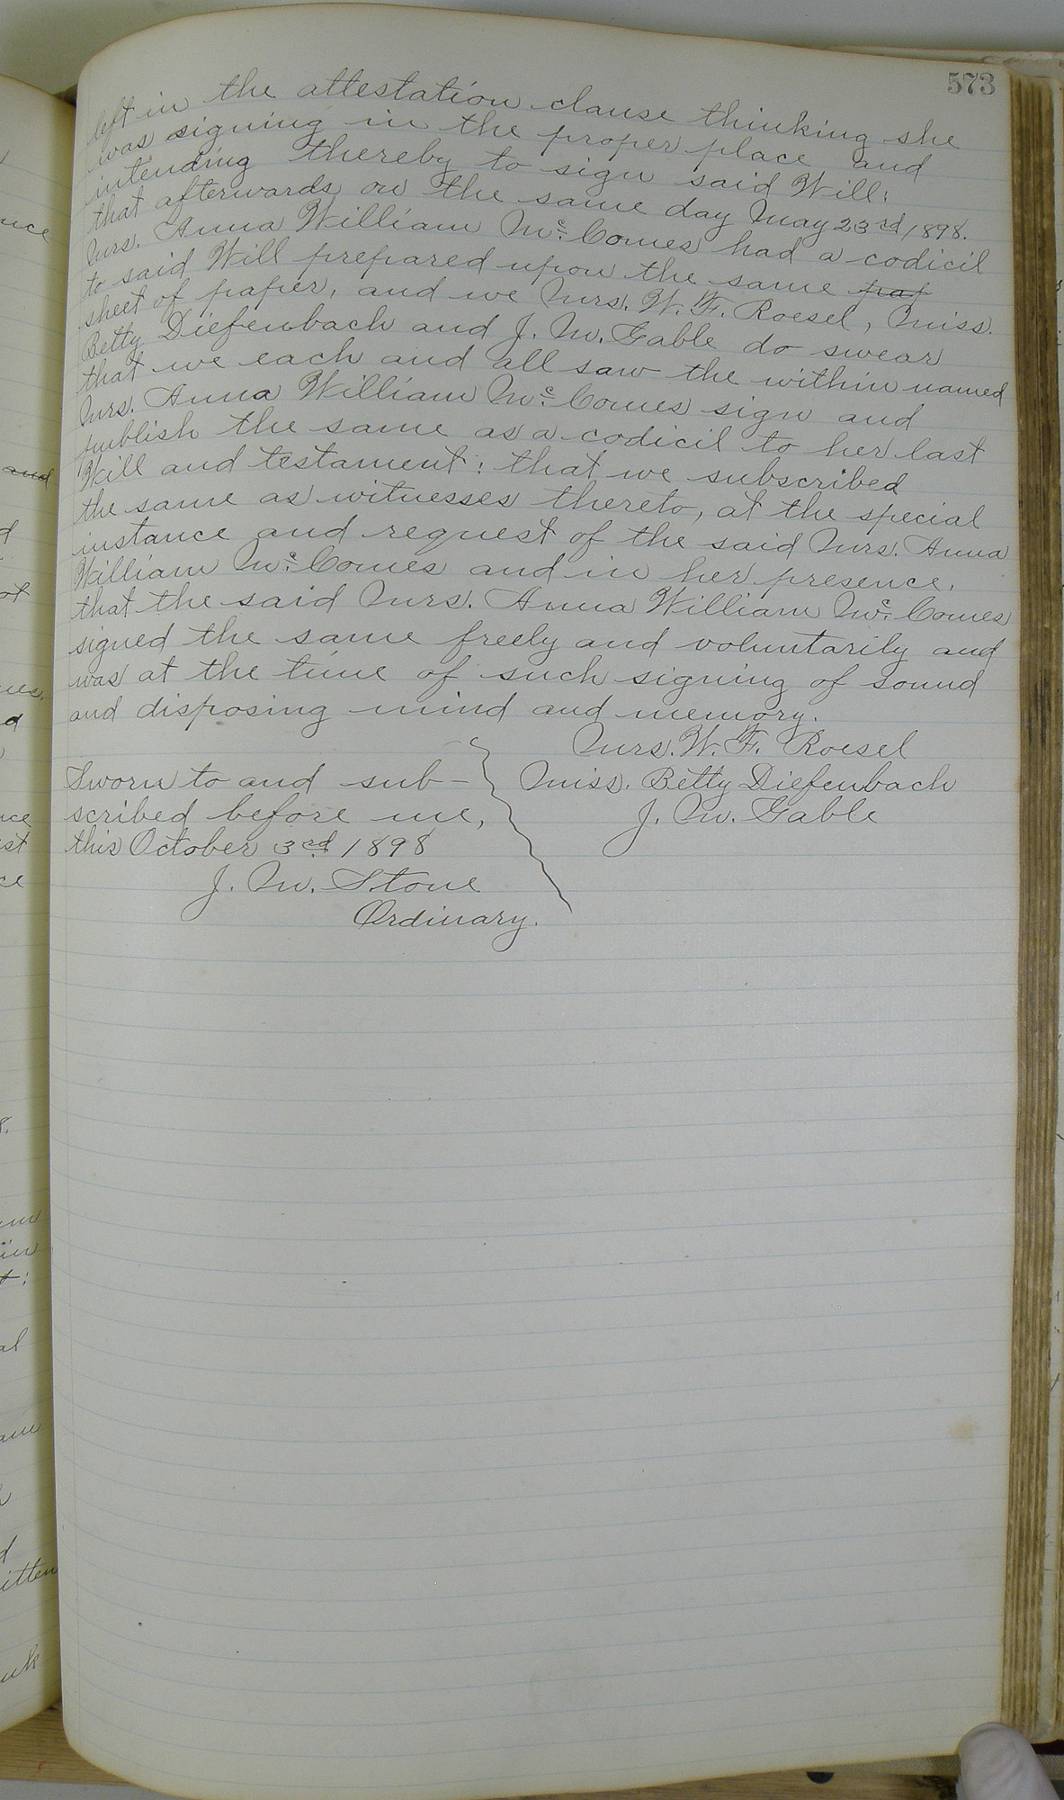 573
left in the attestation clause thinking she
was signing in the proper place and
intending thereby to sign said Will:
that afterwards on the same day May 23rd 1898.
Mrs. Anna William Mc. Comes had a codicil
to said Will prepared upon the same pap
sheet of paper, and we Mrs. W. F. Roesel, Miss.
Betty Diefenbach and J. M. Gable do swear
that we each and all saw the within named
Mrs. Anna William Mc. Comes sign and
publish the same as a codicil to her last
Will and testament: that we subscribed
the same as witnesses thereto, at the special
instance and request of the said Mrs. Anna
William Mc. Comes and in her presence.
that the said Mrs. Anna William Mc. Comes
signed the same freely and voluntarily and
was at the time of such signing of sound
and disposing mind and memory.
Mrs. W. F. Roesel
Miss. Betty Diefenbach
J. M. Gable
Sworn to and sub-
scribed before me,
this October 3rd 1898
J. M. Stone
Ordinary.